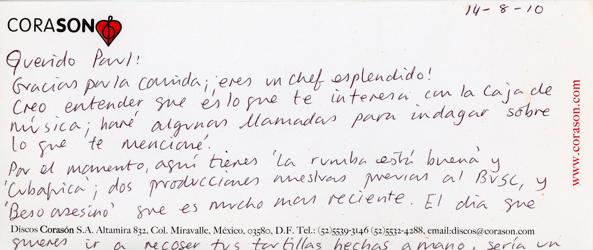 14-8-10
CORASON
Querido Paul!
Gracias por la comida; ¡eres un chef esplendido!
Creo entender que es lo que te interesa con la Caja de
música; haré algunas llamadas para indagar sobre
lo que te mencioné.
Por el momento, aquí tienes 'La rumba está buena' y
'Cubafrica'; dos producciones nuestras previas al BVSC, y
'Beso asesino' que es mucho mas reciente. El día que
www.corason.com
Discos Corasón S.A. Altamira 832, Col. Miravalle, México, 03580, D.F. Tel.: (52)5539-3146 (52)5532-4288, email:discos@corason.com
quieres ir a recoser tus tortillas hechas a mano, sería un